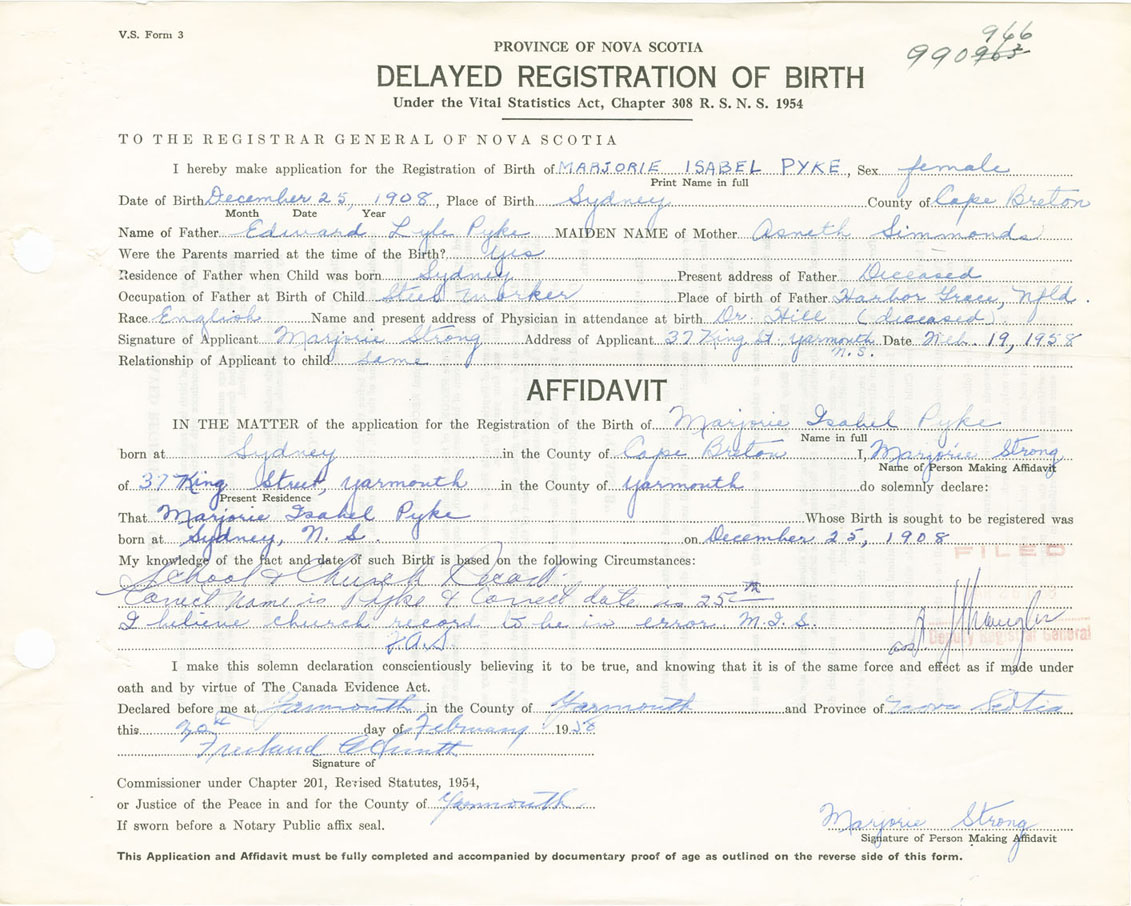 V.S. Form 3
966
990 963
PROVINCE OF NOVA SCOTIA
DELAYED REGISTRATION OF BIRTH
Under the Vital Statistics Act, Chapter 308 R. S. N. S. 1954
TO THE REGISTRAR GENERAL OF NOVA SCOTIA
I hereby make application for the Registration of Birth of MARJORIE ISABEL PYKE, Sex female
Print Name in full
Date of Birth December 25, 1908, Place of Birth Sydney County of Cape Breton
Month Date Year
Name of Father Edward Lyle Pyke MAIDEN NAME of Mother Asneth Simmonds
Were the Parents married at the time of the Birth? Yes
Residence of Father when Child was born Sydney Present address of Father Deceased
Occupation of Father at Birth of Child Steel Worker Place of birth of Father Harbor Grace, Nfld.
Race English Name and present address of Physician in attendance at birth Dr. Hill (deceased)
Signature of Applicant Marjorie Strong Address of Applicant 37 King St. Yarmouth Date Feb. 19, 1958
N.S.
Relationship of Applicant to child same
AFFIDAVIT
IN THE MATTER of the application for the Registration of the Birth of Marjorie Isabel Pyke
Name in full
born at Sydney in the County of Cape Breton I, Marjorie Strong
Name of Person Making Affidavit
of 37 King Street, Yarmouth in the County of Yarmouth do solemnly declare:
Present Residence
That Marjorie Isabel Pyke Whose Birth is sought to be registered was
born at Sydney, N. S. on December 25, 1908
My knowledge of the fact and date of such Birth is based on the following Circumstances:
FILED
School & Church Record.
Correct name is Pyke & Correct date is 25th
I believe church record to be in error. M.I.S.
F.A.S.
Deputy Registrar General
I make this solemn declaration conscientiously believing it to be true, and knowing that it is of the same force and effect as if made under
oath and by virtue of The Canada Evidence Act.
Declared before me at Yarmouth in the County of Yarmouth and Province of Nova Scotia
this 20th day of February 1958
Freeland A Smith
Signature of
Commissioner under Chapter 201, Revised Statutes, 1954,
or Justice of the Peace in and for the County of Yarmouth
If sworn before a Notary Public affix seal.
Marjorie Strong
Signature of Person Making Affidavit
This Application and Affidavit must be fully completed and accompanied by documentary proof of age as outlined on the reverse side of this form.